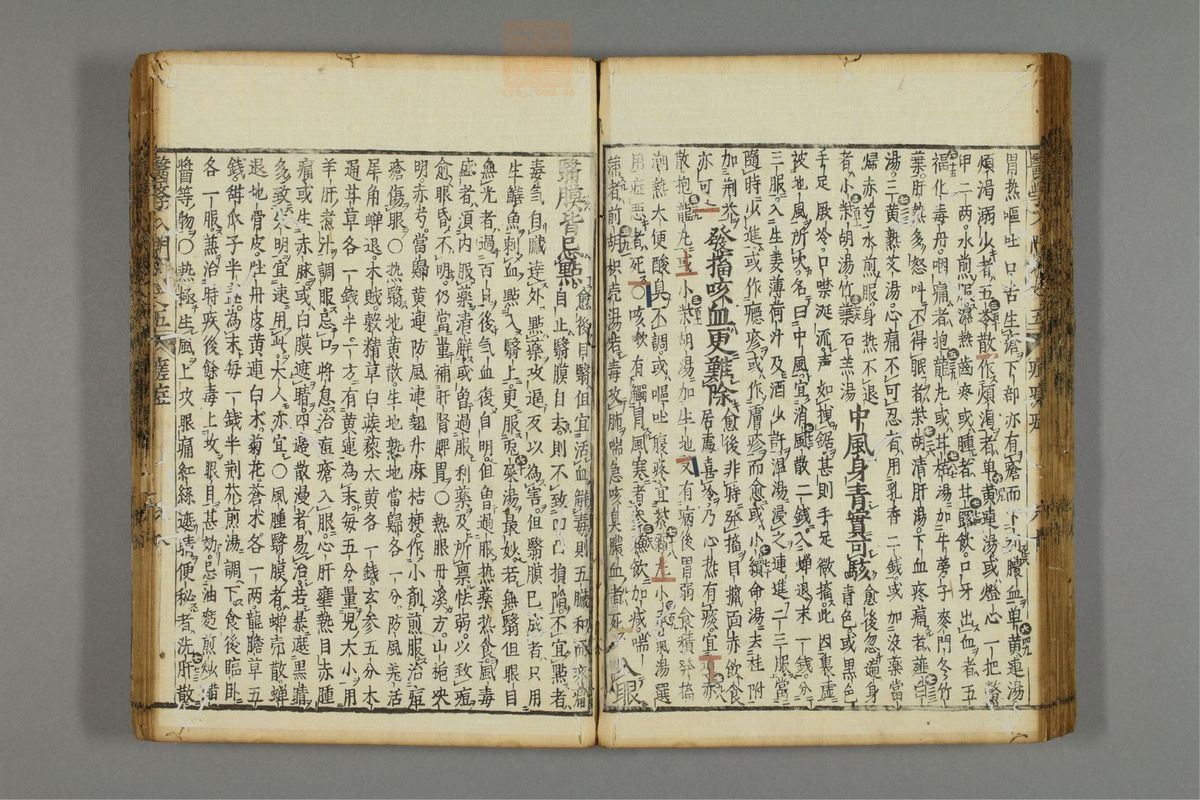 胃熱嘔吐口舌生瘡而下部亦有瘡而下利膿血單黃連湯
煩渴溺少者五苓散作煩渴者單黃連湯或燈心一把鱉
甲二兩水煎服濕熱齒疼或腫者甘露飲口牙出血者五
福化毒丹咽痛者抱龍丸或甘桔湯加牛蒡子麥門冬竹
葉肝熱多怒叫不得眠者柴胡清肝湯下血疼痛者
湯三黃熟艾湯心痛不可忍有用乳香二錢或加沒藥當
歸赤芍水煎服身熱不退
者小柴胡湯竹葉石羔湯
中風身青實可駭
愈後忽遍身
青色或黑色
手足厥冷口噤涎流聲如拽鋸甚則手足微搐此因裏虛
被地風所吹名曰中風宜消風散二錢入蟬退末一錢分
三服入生姜薄荷汁及酒少許溫湯浸之連進二三服當
隨時少進或作癮疹或作膚疹而愈或小續命湯去桂附
加荊芥
亦可
發搐咳血更難除
愈後非時發搐目攛面赤飲食
居處喜冷乃心熱有痰宜
散抱龍丸或小柴胡湯加生地又有病後胃弱食積發搐
潮熱大便酸臭不調或嘔吐腹疼宜紫霜丸小承氣湯選
用遲惡者死○咳嗽有觸冒風寒者參蘇飲加減喘
者前胡枳殼湯若毒攻肺喘急咳臭膿血者死
眼
翳膜皆忌點
愈後目翳但宜活血觧毒則五臟和而衰滯
自止翳膜自去則不致凹凸損陷不宜點者
毒氣自臟達外點藥攻逼反以為害但翳膜已成者只用
生鱔魚刺血點入翳上更服兎屎湯最妙若無翳但眼目
無光者過百日後氣血復自明但曾過服热藥热食風毒
盛者須內服藥清觧或曾過服利藥及所禀怯弱以致痘
愈眼昏不明仍當量補肝腎脾胃○熱眼丹溪方山梔央
明赤芍當歸黃連防風連翹升麻桔梗作小劑煎服治痘
瘡傷眼○热翳地黃散生地熟地當歸各一分防風羌活
犀角蟬退木賊穀精草白蒺藜大黃各一錢玄參五分木
通甘草各一錢半一方有黃連為末每五分量兒大小用
羊肝煮汁調服忌口將息治痘瘡入眼心肝壅熱目赤腫
痛或生赤脉或白膜遮睛四邊散漫者易治若暴遮黑睛
多致失明宜速用此大人亦宜○風腫翳膜者蟬壳散蟬
退地骨皮牡丹皮黃連白术菊花蒼术各一兩龍膽草五
錢甜瓜子半盞為末每一錢半荊芥煎湯調下食後臨臥
各一服兼治時疾後餘毒上攻眼目甚効忌油麵煎炒醬
醬等物○熱極生風上攻眼痛紅絲遮睛便秘者洗肝散
醫學入門